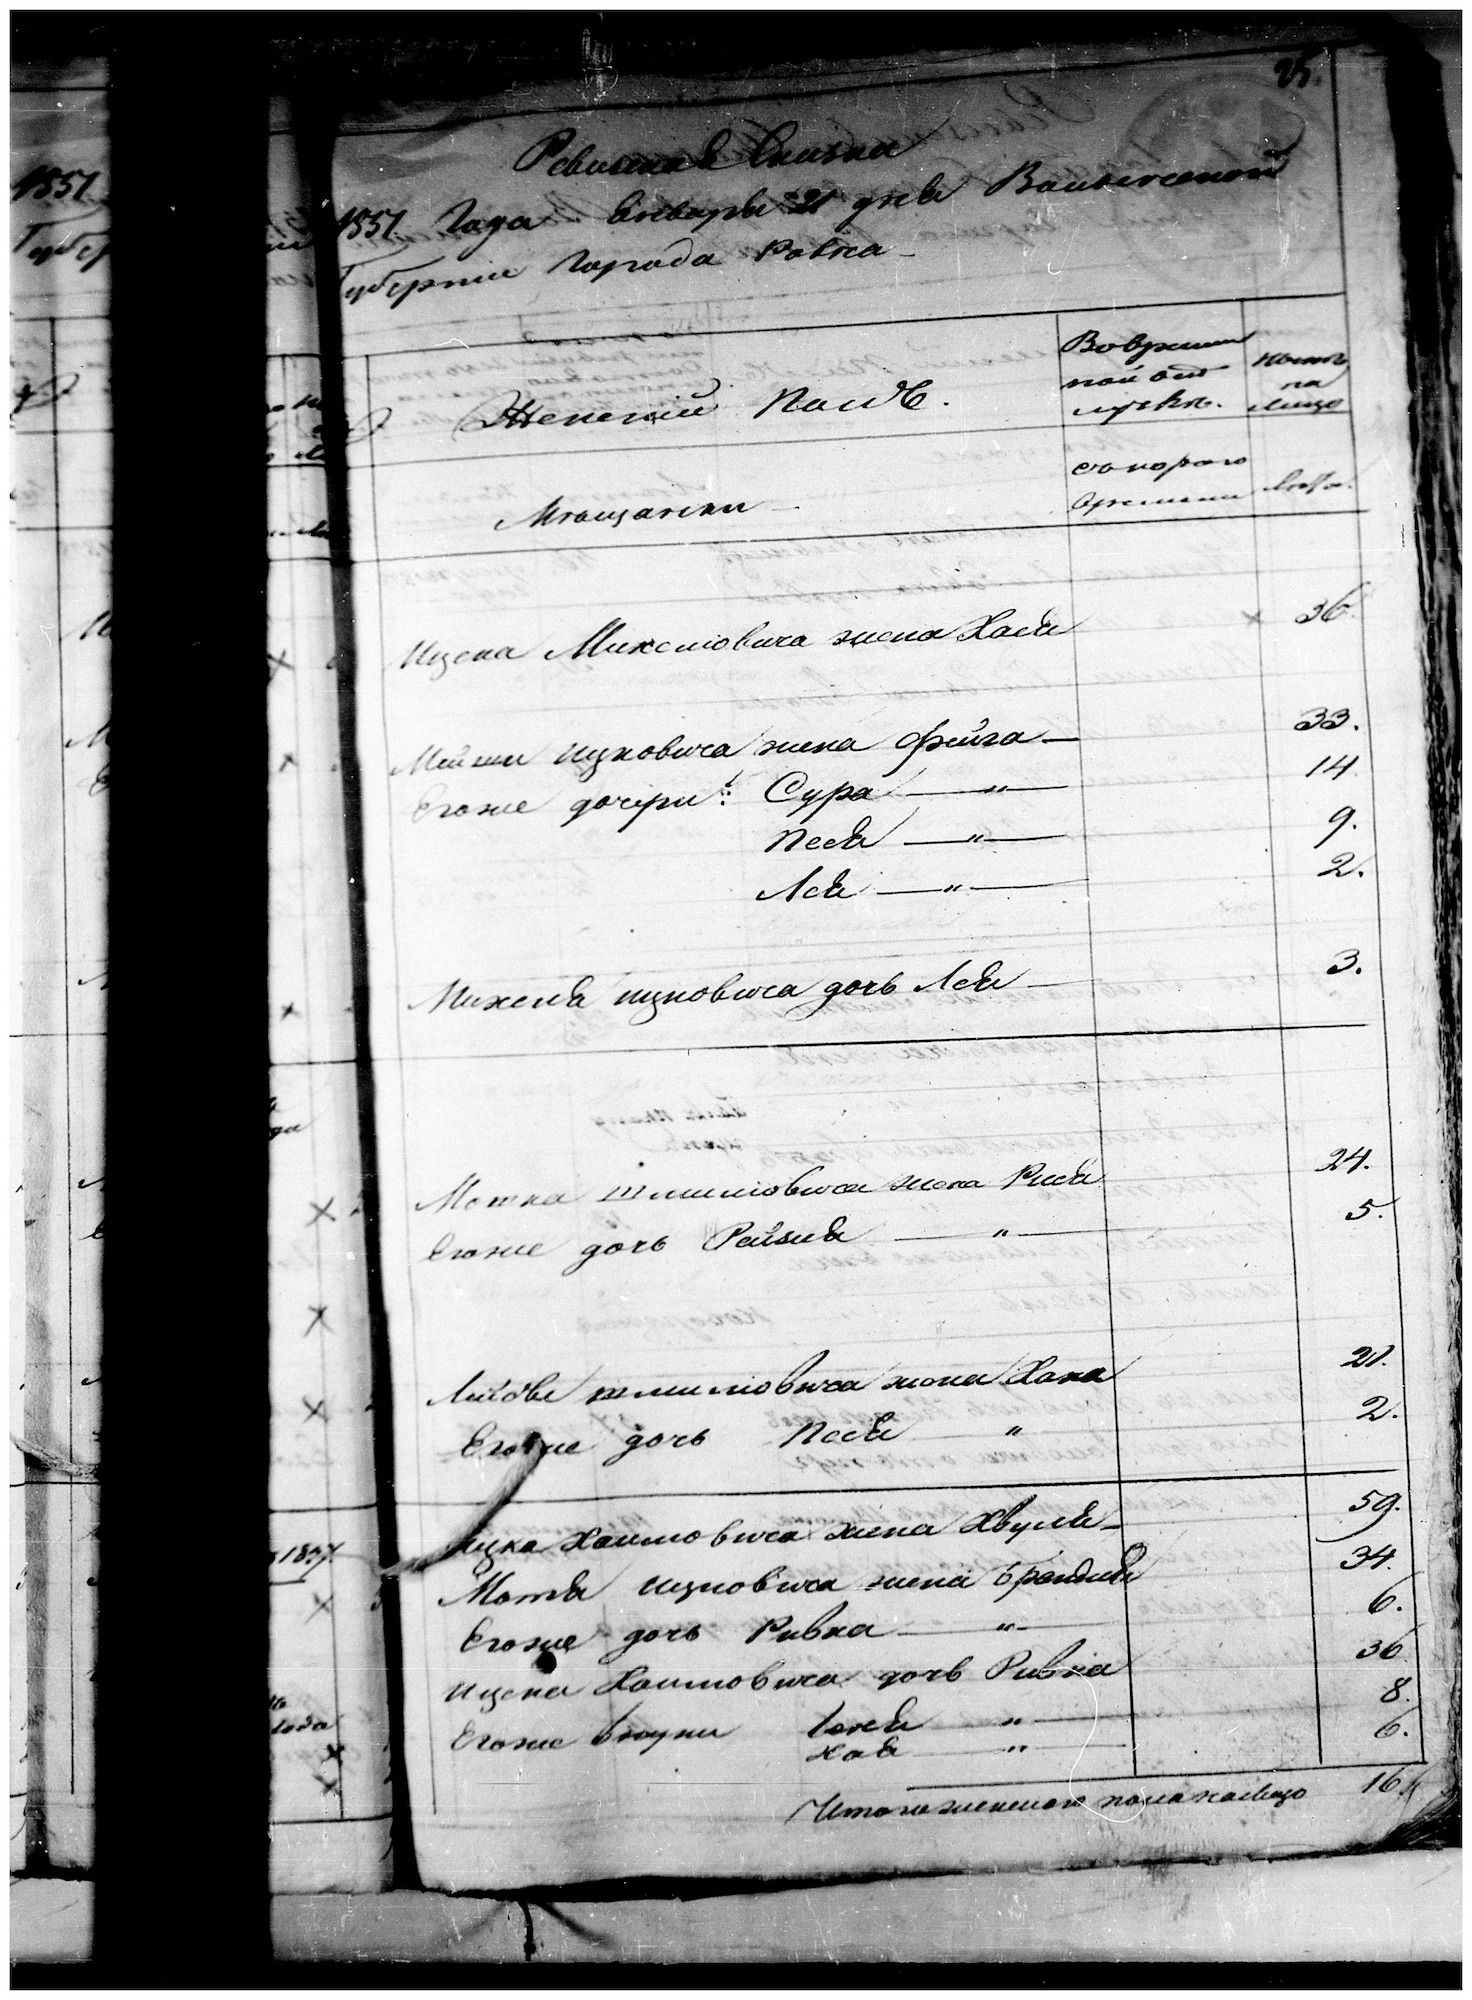 25.
Ревизская Сказка
1851 Года Января 21 дня Волынской
Губернии Города Ровна
Женский Полъ.
Во временной отлучкѣ.
Ныне на лицо
Мѣщанки
съ котораго времени
Лѣта.
Ицека Михелiовича жена Хася 36.
Мейши Ицковича жена Фейга 33.
Его же дочери: Сура " 14
Песя " 9.
Лея " 2.
Михеля Ицковича дочь Лея 3.
Мотка Шлиомовича жена Рися 24.
Его же дочь Рейзля " 5.
Лейбы Шлиомовича жена Хана 21.
Его же дочь Песя " 2.
Ицка Хаимовича жена Хвуля 59.
Мотя Ицковича жена Брандля 34.
Его же дочь Ривка " 6.
Ицека Хаимовича дочь Ривка 36
Его же внуки " 8.
Хая " 6.
Итого женскаго пола на лицо 16.
1851
1857
года